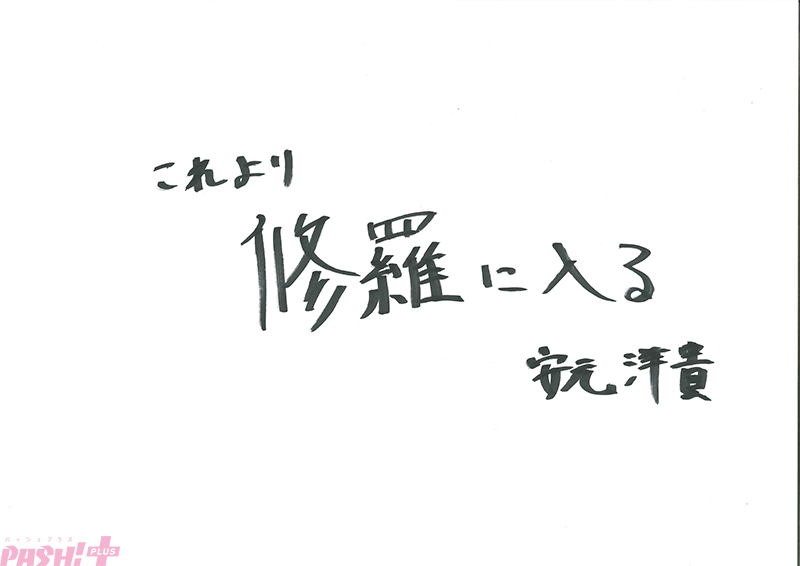 これより
修羅に入る
安元洋貴
パッシュプラス
PASH!+ PLUS